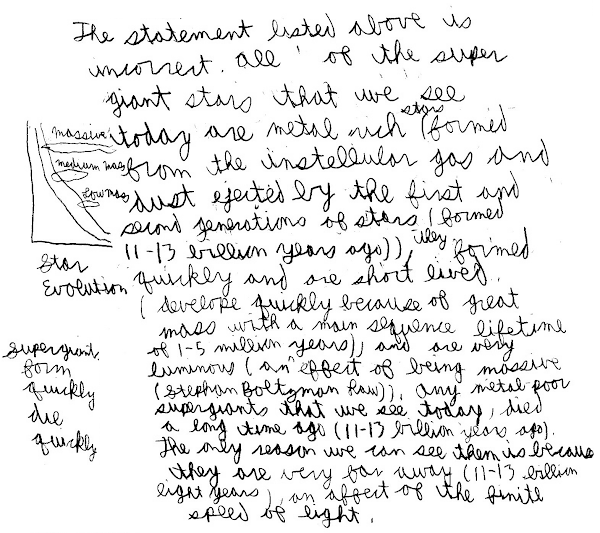 The statement listed above is
incorrect. All of the super
giant stars that we see
today are metal rich stars (formed
from the instellular gas and
dust ejected by the first and
second generations of stars (formed
11-13 billion years ago)), they formed
quickly and are short lived.
(develope quickly because of great
mass with a main sequence lifetime
of 1-5 million years)), and are very
luminous (an effect of being massive
(Stephan Boltzman Law)). Any metal poor
supergiants that we see today, died
a long time ago (11-13 billion years ago).
The only reason we can see them is because
they are very far away (11-13 billion
light years), an affect of the finite
speed of light.
massive
medium mass
low mass
Star
Evolution
supergiants
form
quickly
die
quickly